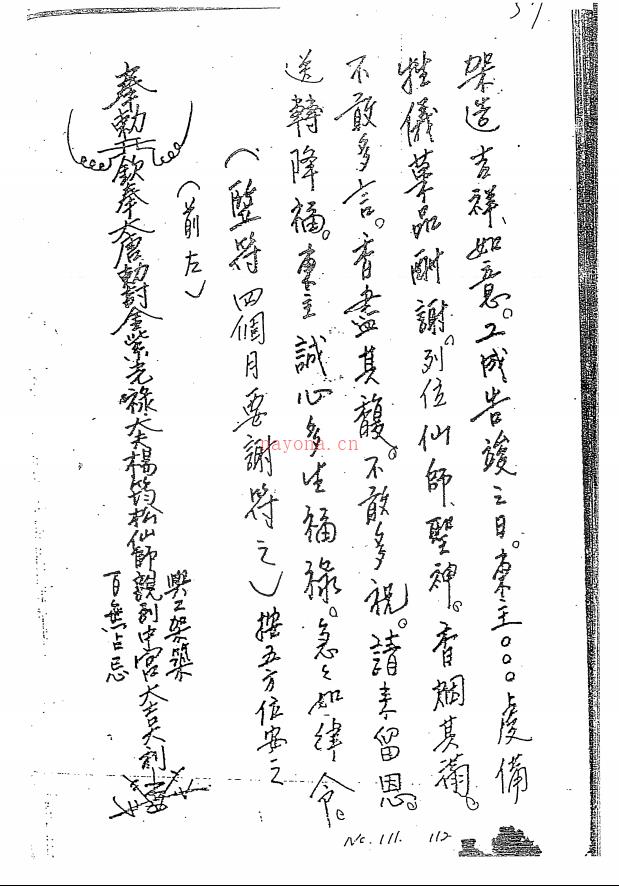 57
架造吉祥、如意。工成告竣之日。東主〇〇〇虔備
牲儀菓品酧謝。列位仙師、聖神。香烟其滿。
不敢多言。香盡其馥。不敢多祝。請來留恩。
送轉降福。東主誠心多生福祿。急々如律令。
（竪符四個月要謝符之）按五方位安之
（前左）
奉勅 欽奉大唐勅封金紫光祿大夫楊筠松仙師親到中宮大吉大利
興工架築
百無占忌
nayona.cn
No. 111. 112